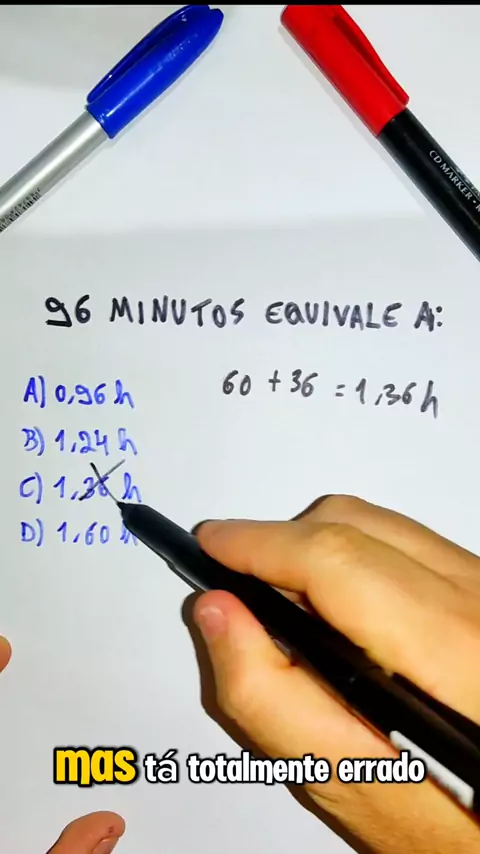 CD MARKER
96 MINUTOS EQUIVALE A:
A) 0,96 h
60 + 36 = 1,36 h
B) 1,24 h
C) 1,36 h
D) 1,60 h
mas tá totalmente errado